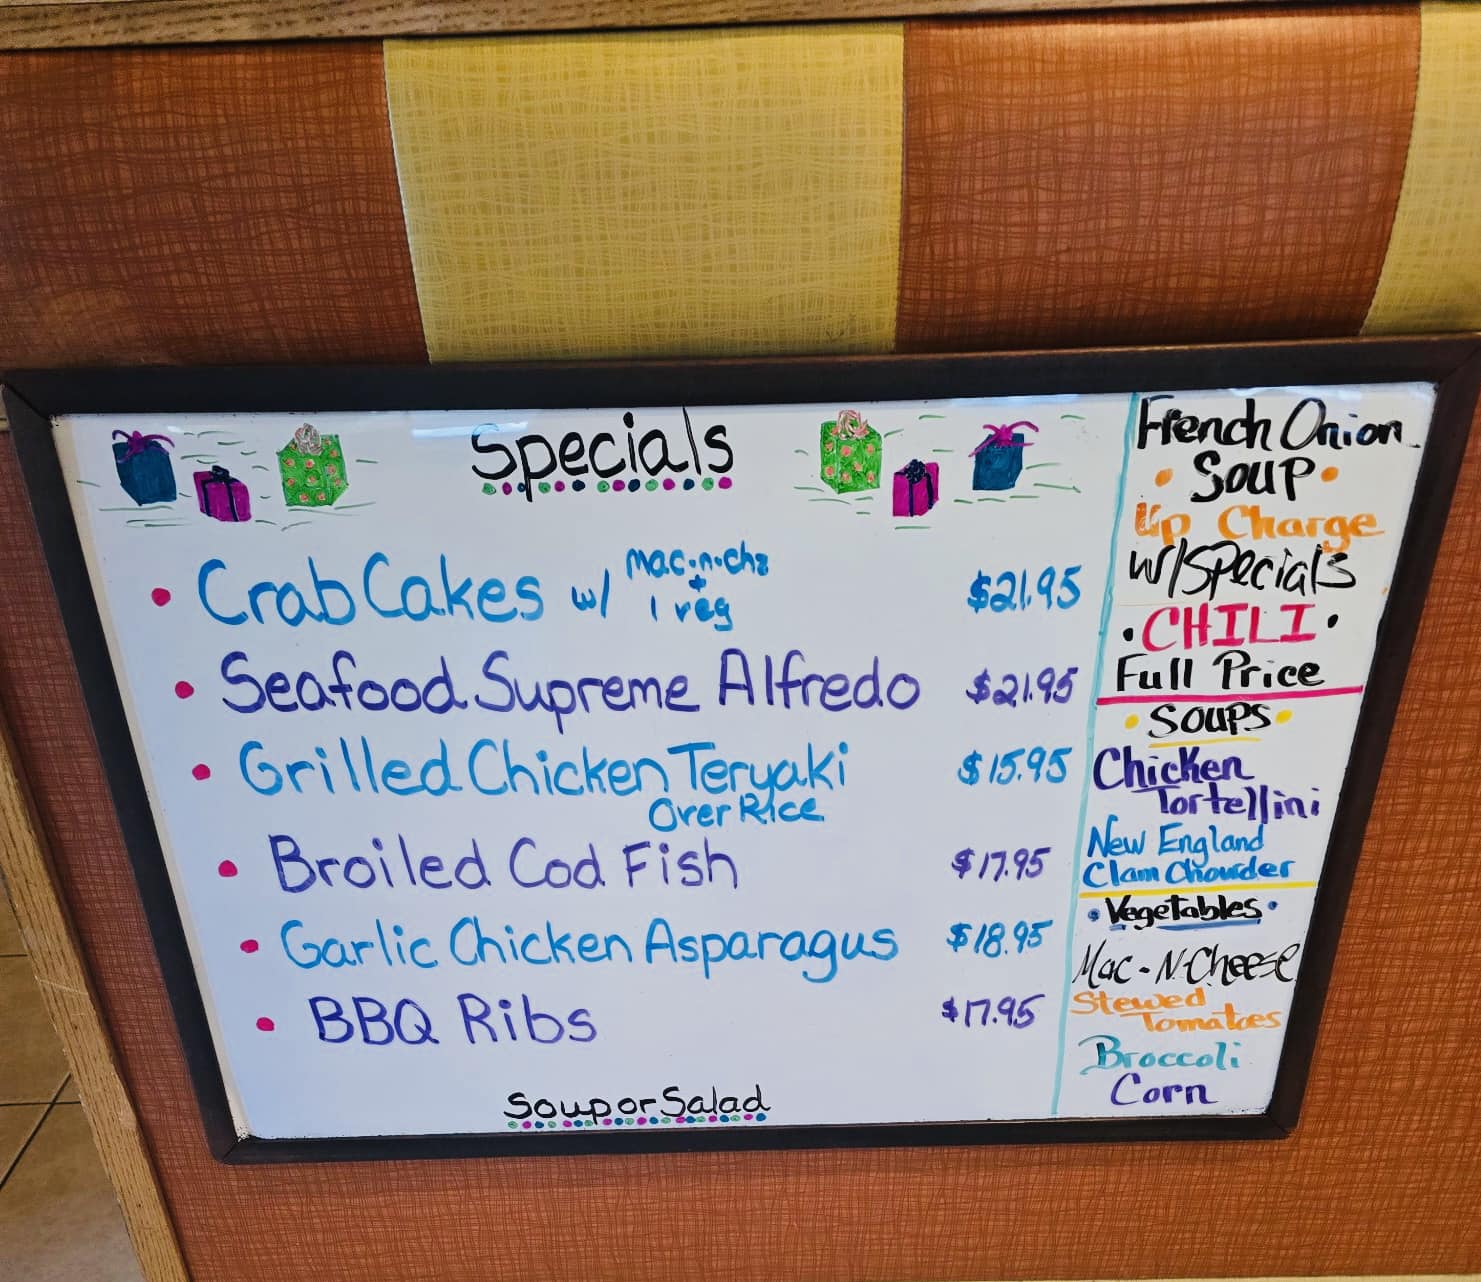 Specials
• Crab Cakes w/ mac-n-chz + 1 veg $21.95
• Seafood Supreme Alfredo $21.95
• Grilled Chicken Teryaki $15.95
Over Rice
• Broiled Cod Fish $17.95
• Garlic Chicken Asparagus $18.95
• BBQ Ribs $17.95
Soup or Salad
French Onion
• Soup •
Up Charge
w/Specials
• CHILI •
Full Price
• Soups •
Chicken
Tortellini
New England
Clam Chowder
• Vegetables •
Mac-N-Cheese
Stewed
Tomatoes
Broccoli
Corn